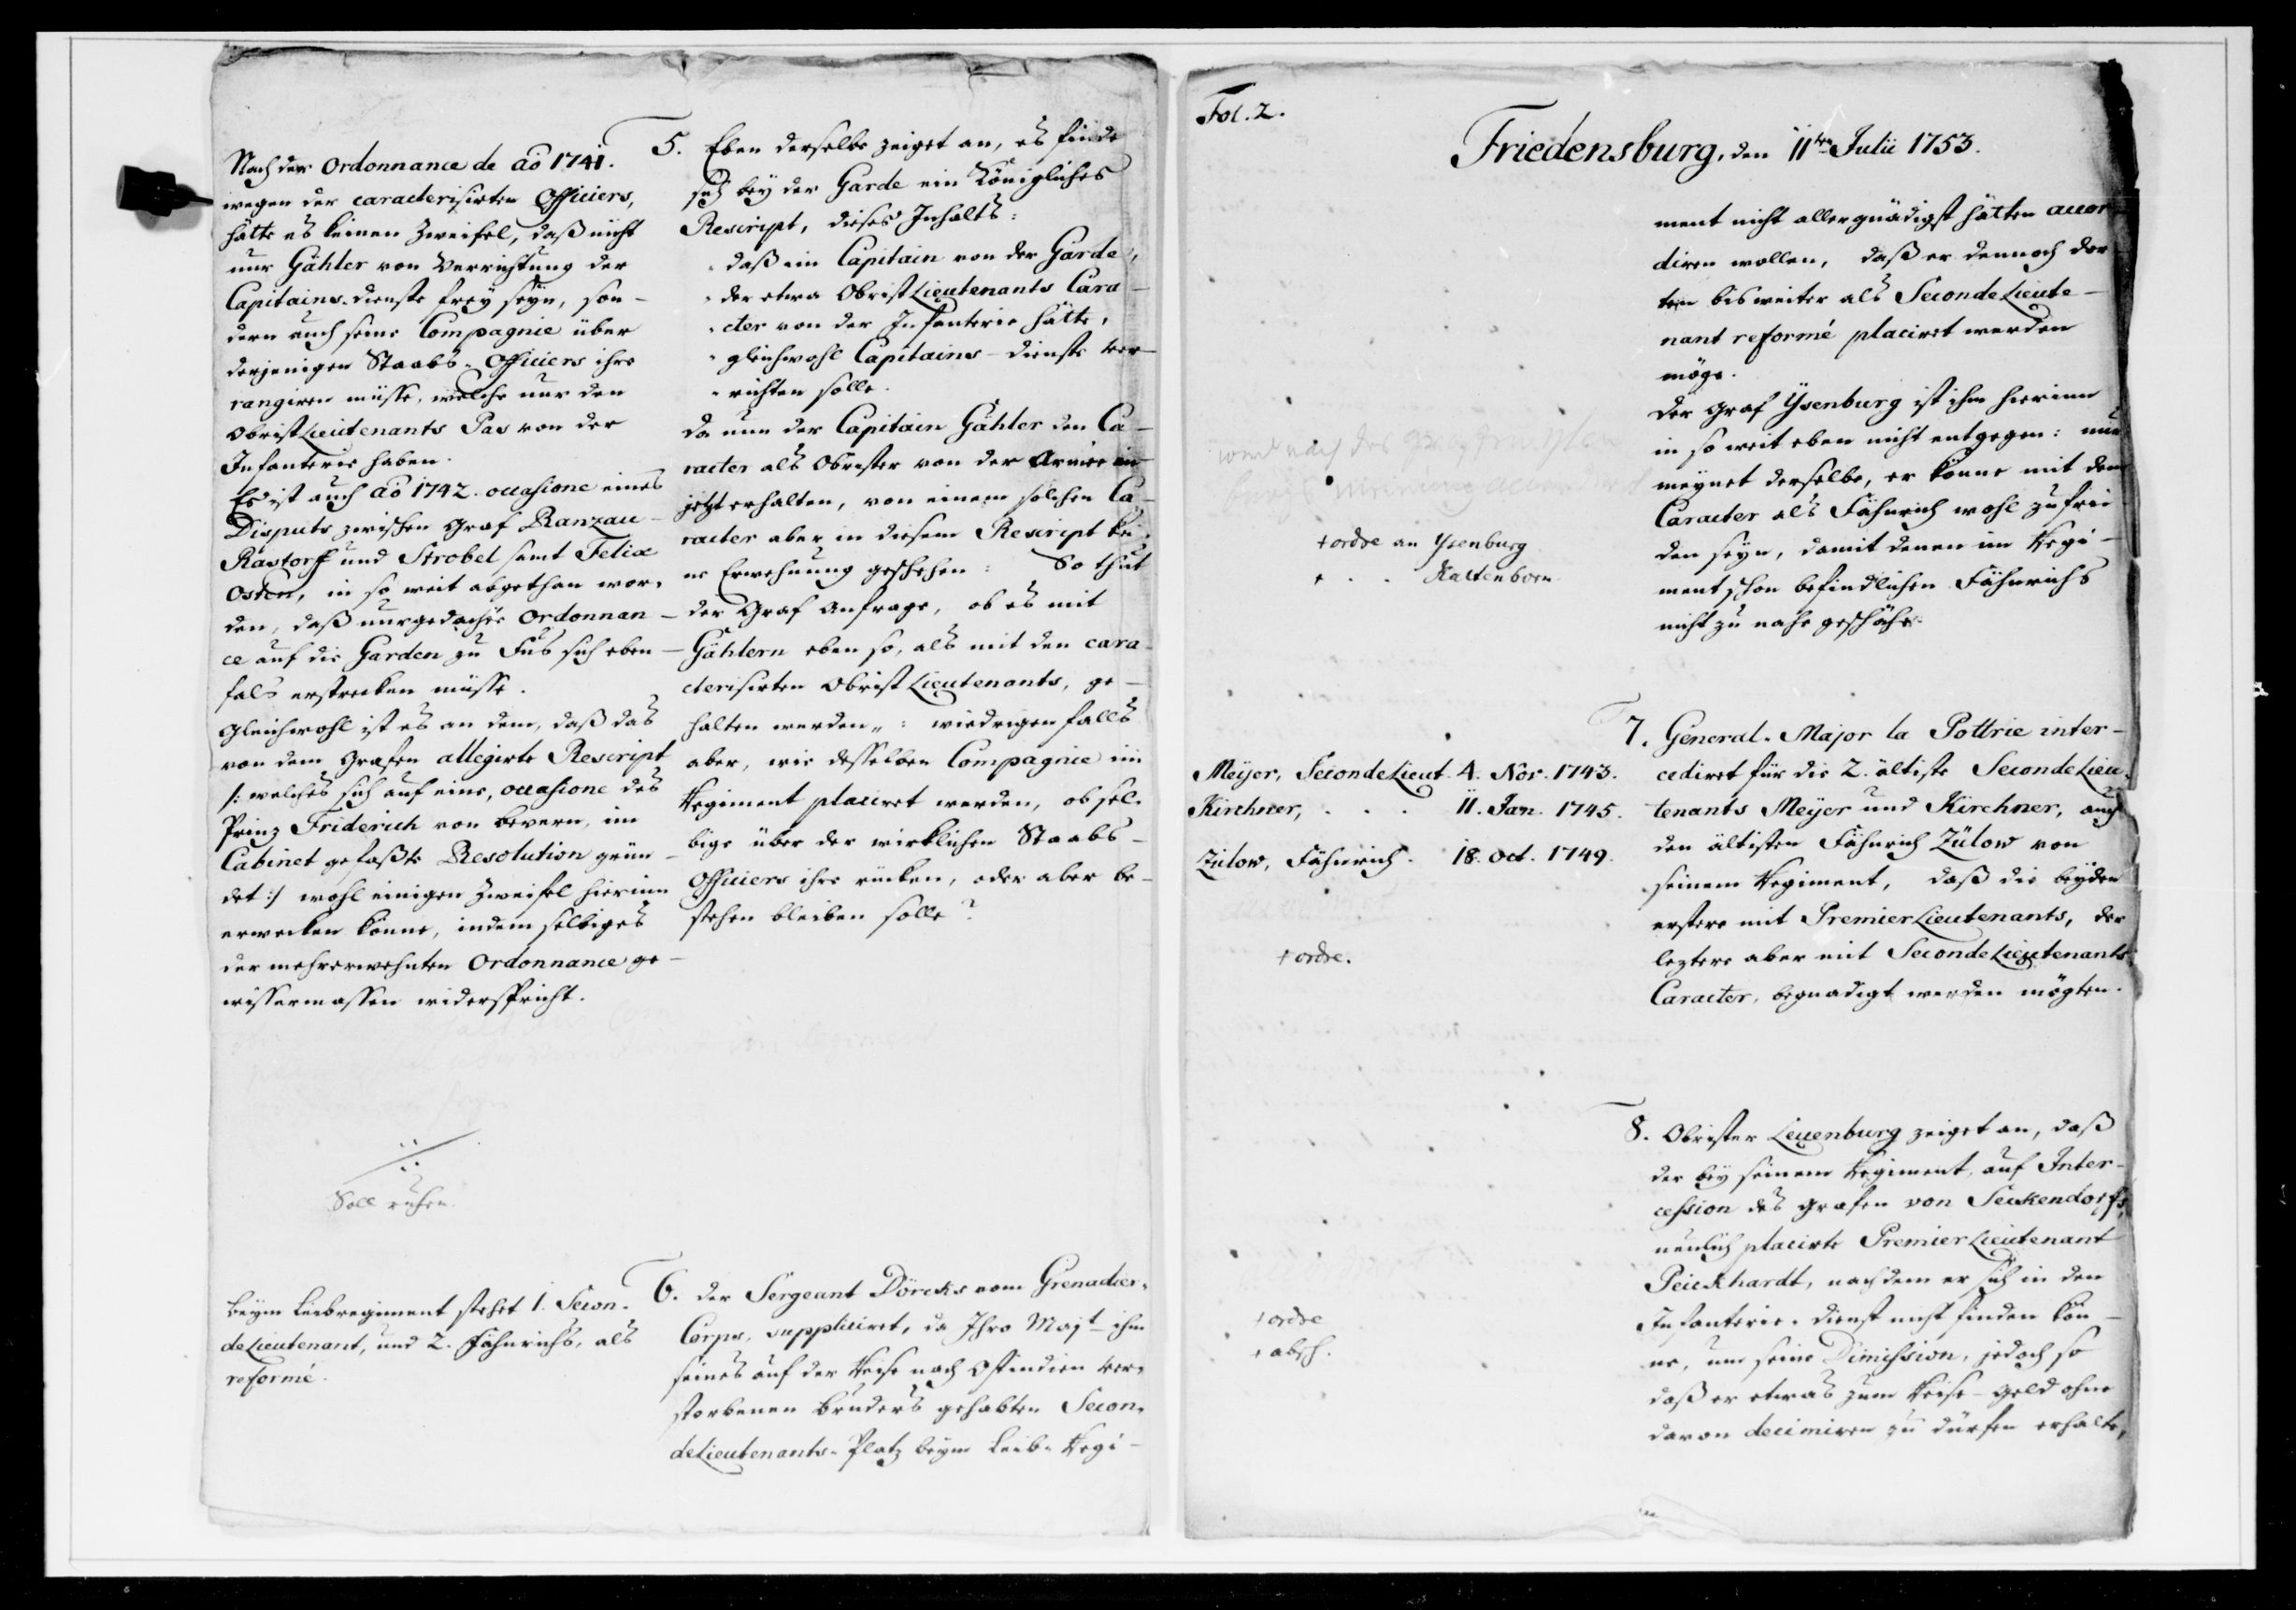 Nach der Ordonnance de aō 1741.
wegen der caracterisirten Officiers,
hätte es keinen Zweifel, daß nicht
nur Gähler von Verrichtung der
Capitains-dienste frey seyn, son-
dern auch seine Compagnie über
derjenigen Staabs-Officiers ihre
rangiren müsse, welche nur den
ObristLieutenants Pas von der
Infanterie haben.
Es ist auch aō 1742. occasione eines
Disputs zwischen Graf Ranzau-
Rastorff und Strobel samt Felix
Osten, in so weit abgethan wor-
den, daß nurgedachte Ordonnan-
ce auf die Garden zu Fuß sich eben-
fals erstrecken müsse.
Gleichwohl ist es an dem, daß das
von dem Grafen allegirte Rescript
/: welches sich auf eine, occasione des
Prinz Friderich von Bevern, im
Cabinet gefaßte Resolution grün-
det :/ wohl einigen Zweifel hierinn
erwecken könne, indem selbiges
der mehrerwehnten Ordonnance ge-
wissermassen widerspricht.
Soll ruhen.
Beym Leibregiment stehet 1. Secon-
deLieutenant, und 2. Fähnrichs, als
reformé.
5. Eben derselbe zeiget an, es finde
sich bey der Garde ein Königliches
Rescript, dieses Inhalts:
"daß ein Capitain von der Garde,
"der etwa ObristLieutenants Cara-
"cter von der Infanterie hätte,
"gleichwohl Capitains-dienste ver-
"richten solle.
Da nun der Capitain Gähler den Ca-
racter als Obrister von der Armée
jetzt erhalten, von einem solchen Ca-
racter aber in diesem Rescript kei-
ne Erwehnung geschehen: So thut
der Graf Anfrage, ob es mit
Gählern eben so, als mit den cara-
cterisirten ObristLieutenants, ge-
halten werden„: wiedrigenfalls
aber, wie desselben Compagnie im
Regiment placiret werden, ob sel-
bige über der wirklichen Staabs-
Officiers ihre rücken, oder aber be-
stehen bleiben solle?
6. Der Sergeant Dörcks vom Grenadier-
Corps, suppliciret, da Ihro Majt ihm
seines auf der Reise nach Ostindien ver-
storbenen Bruders gehabten Secon-
deLieutenants-Platz beym Leib-Regi-
Fol. 2.
Friedensburg, den 11ten Julii 1753.
ment nicht allergnädigst hätten accor-
diren wollen, daß er dennoch dor-
ten bis weiter als SecondeLieute-
nant reformé placiret werden
möge.
Der Graf Ysenburg ist ihm hierinn
in so weit eben nicht entgegen: nur
meynet derselbe, er könne mit dem
Caracter als Fähnrich wohl zufrie-
den seyn, damit denen im Regi-
ment schon befindlichen Fähnrichs
nicht zu nahe geschähe.
+ ordre an Ysenburg
+ . . Kaltenborn
7. General-Major la Pottrie inter-
cediret für die 2. ältiste SecondeLieu-
tenants Meÿer und Kirchner, auch
den ältisten Fähnrich Zülow von
seinem Regiment, daß die beyden
erstere mit PremierLieutenants, der
leztere aber mit SecondeLieutenants
Caracter, begnadigt werden mögten.
Meÿer, SecondeLieut. 4. Nov. 1743.
Kirchner, . . . 11. Jan. 1745.
Zülow, Fähnrich. 18. Oct. 1749.
+ ordre.
8. Obrister Leuenburg zeiget an, daß
der bey seinem Regiment, auf Inter-
cession des Grafen von Seckendorfs,
neulich placirte PremierLieutenant
Peickhardt, nachdem er sich in den
Infanterie-dienst nicht finden kön-
ne, um seine Dimission, jedoch so
daß er etwas zum Reise-Geld ohne
davon decimiren zu dürfen erhalte,
+ ordre
+ absch.